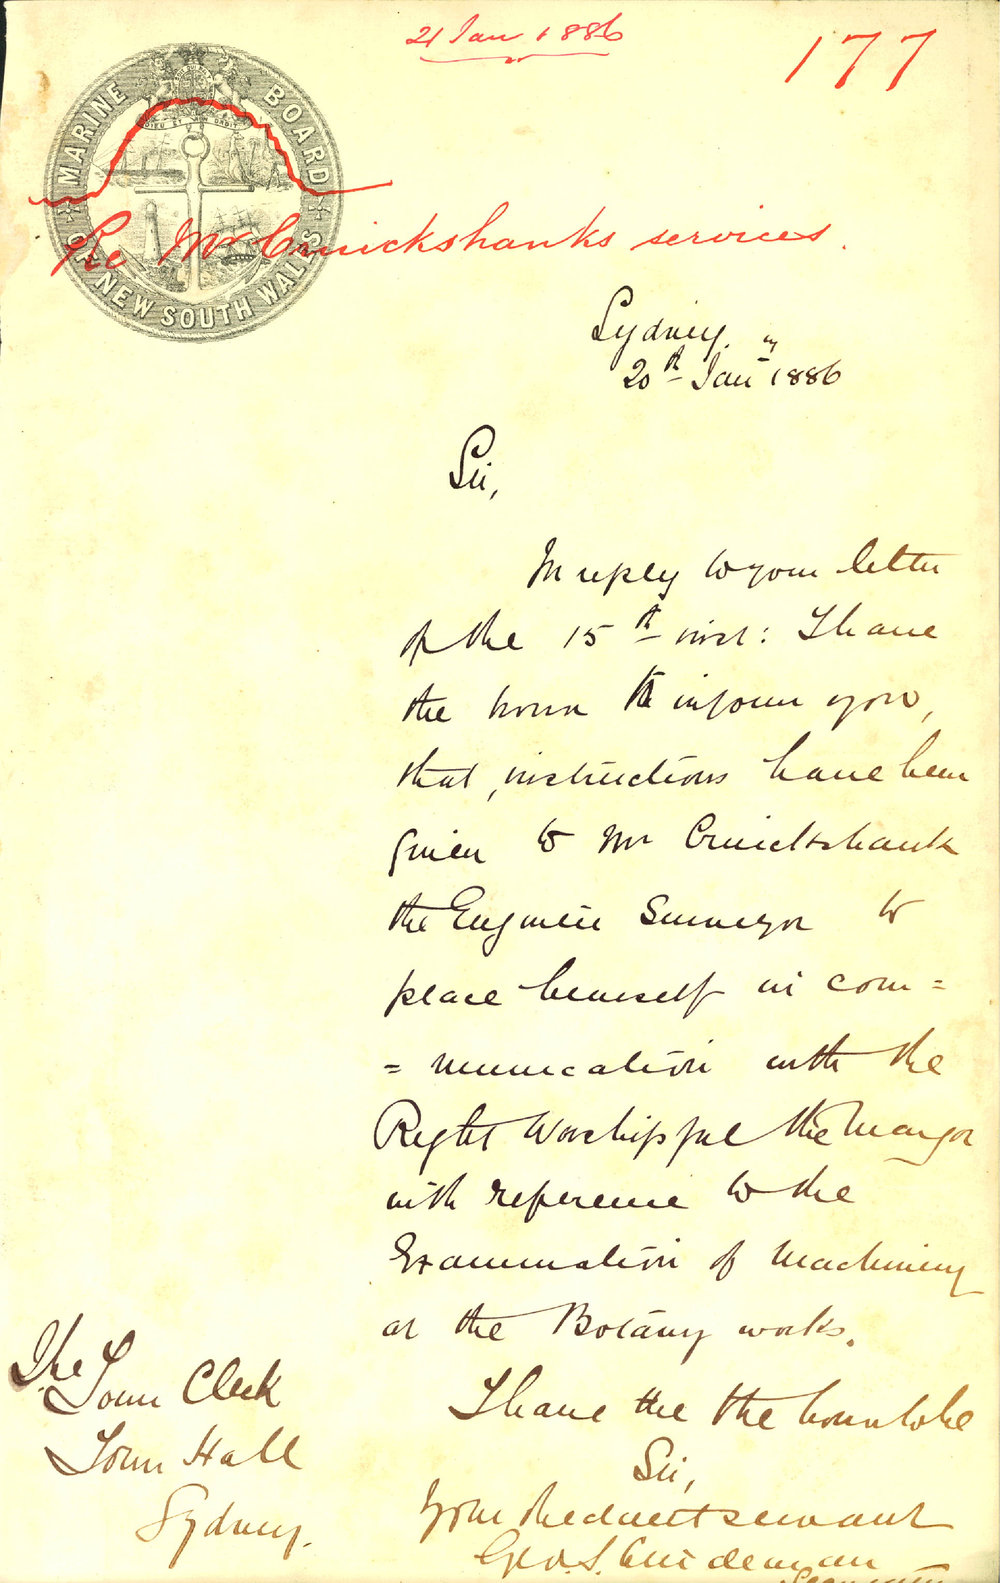 21 Jan 1886
177
MARINE BOARD
OF NEW SOUTH WALES
DIEU ET MON DROIT
Re Mr Cruickshanks services.
Sydney.
20th Jany 1886
Sir,
In reply to your letter
of the 15th inst: I have
the honor to inform you,
that, instructions have been
given to Mr Cruickshank
the Engineer Surveyor to
place himself in com=
=munication with the
Right Worshipful the Mayor
with reference to the
Examination of Machinery
at the Botany works.
I have the the honor to be
Sir,
Your obedient servant
Geo. S.
Secretary
The
Town Clerk
Town Hall
Sydney.